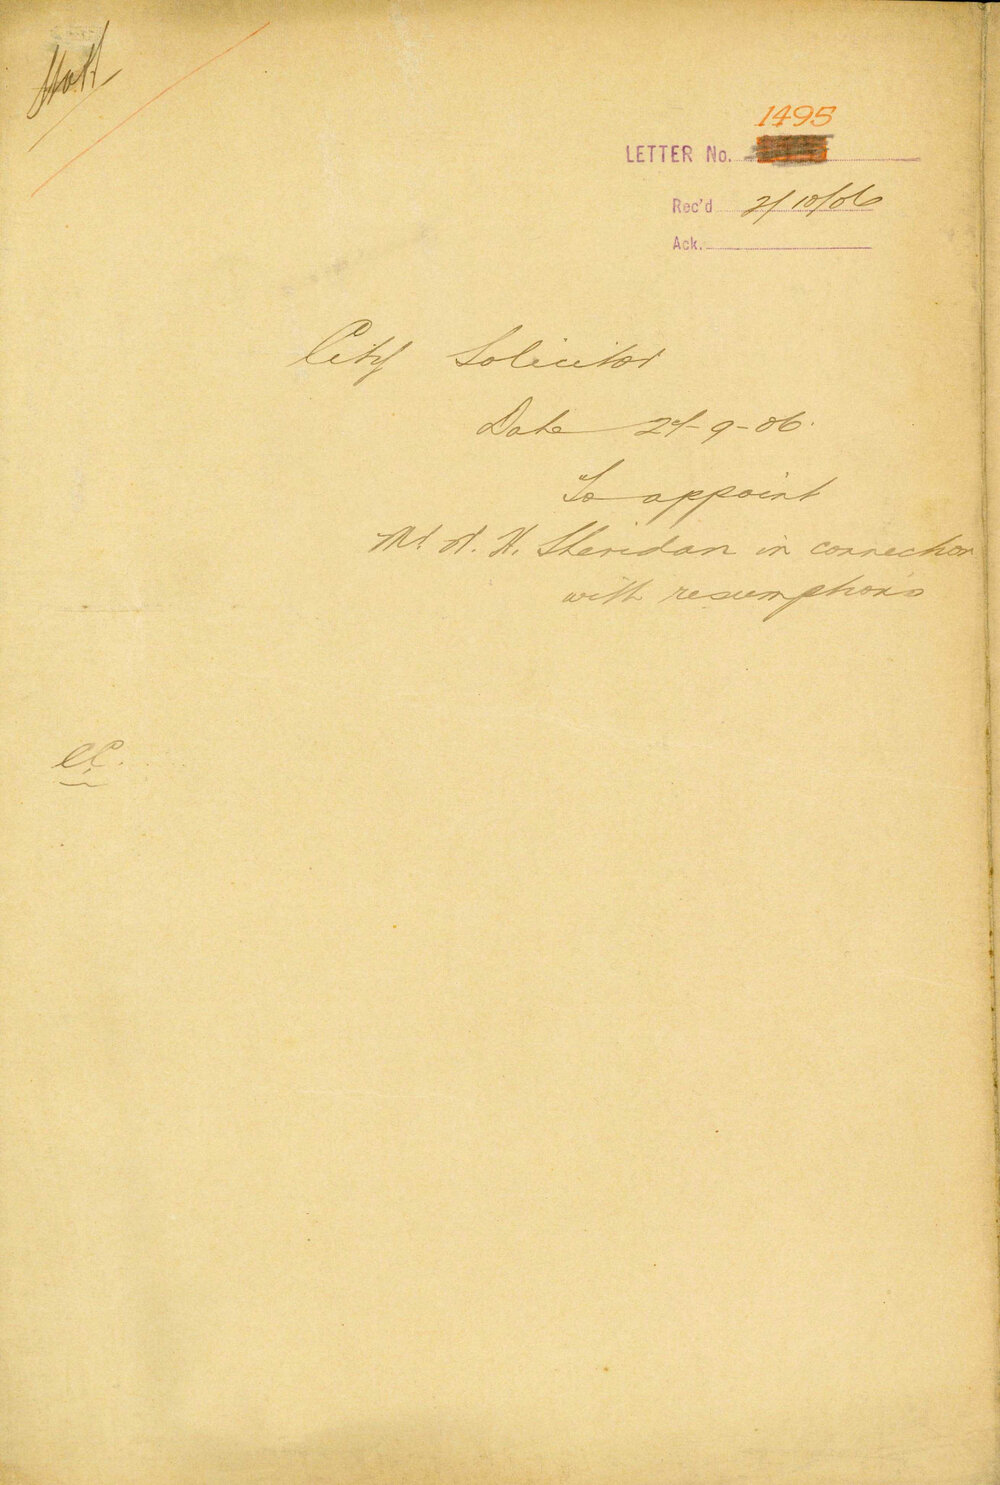 1495
LETTER No.
Rec'd 2/10/06
Ack.
City Solicitor
Date 27-9-06.
To appoint
Mr. H. Sheridan in connection
with resumptions